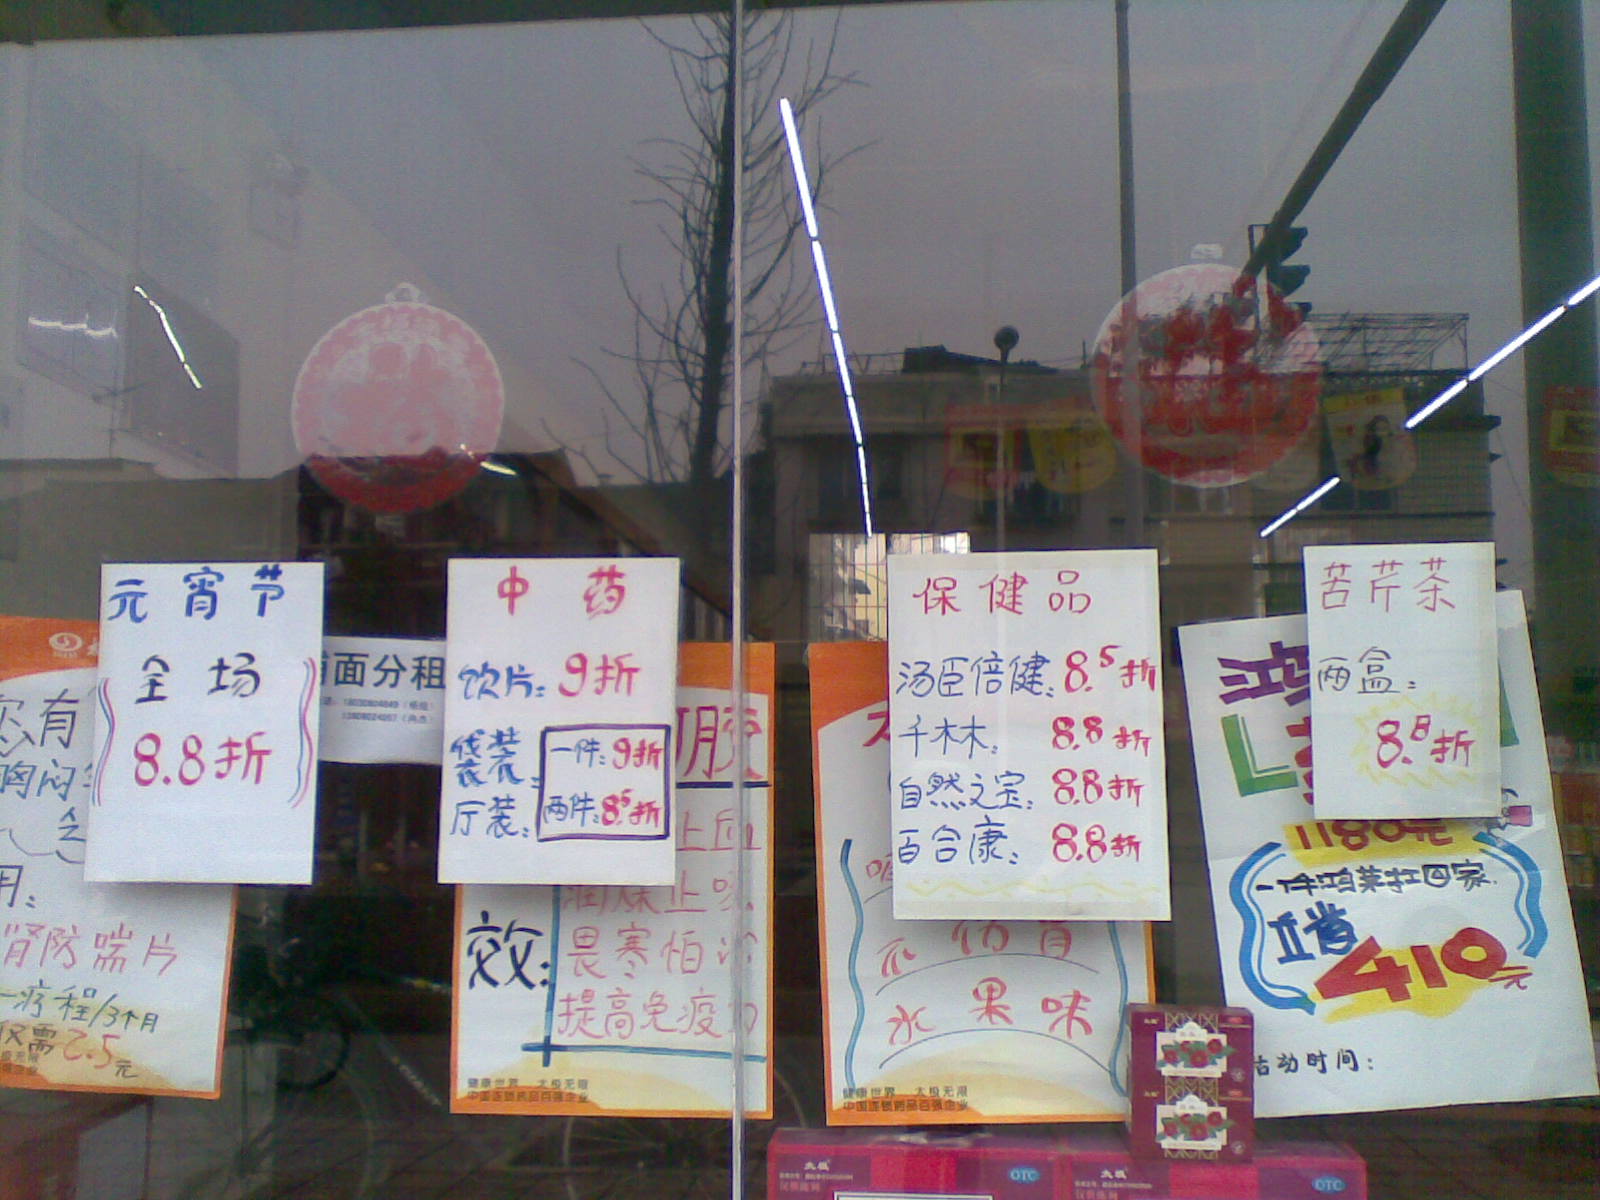 元宵节
全场
8.8折
中药
饮片：9折
袋装：
厅装：
一件：9折
两件：8.5折
保健品
汤臣倍健：8.5折
千木木：8.8折
自然之宝：8.8折
百合康：8.8折
苦芹茶
两盒：
8.8折
面分租
您有
胸闷
用：
肾防喘片
一疗程/3个月
仅需2.5元
胶
上血
润燥止咳
效：
畏寒怕冷
提高免疫力
健康世界 太极无限
中国连锁药品百强企业
水果味
健康世界 太极无限
中国连锁药品百强企业
鸿
1180元
一件鸿莱扛回家
立省
410元
活动时间：
太极
OTC
太极
OTC